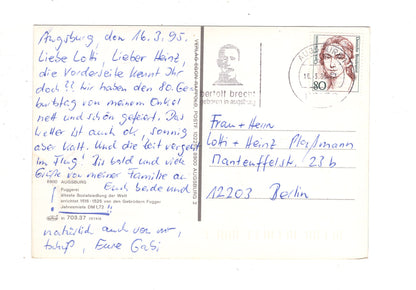 Augsburg, den 16.3.95.
Liebe Lotti, Lieber Heinz,
die Vorderseite kennt Ihr
doch?! Wir haben den 80. Ge-
burtstag von meinem Onkel
nett und schön gefeiert. Das
Wetter ist auch ok, sonnig
aber kalt. Und die Zeit vergeht
im Flug! Bis bald und viele
Grüße von meiner Familie an
Euch beide und
8900 AUGSBURG
Fuggerei
älteste Sozialsiedlung der Welt
errichtet 1516-1525 von den Gebrüdern Fugger
Jahresmiete DM 1,72 !
natürlich auch von mir,
Eure Gabi
bertolt brecht
80
Frau + Herrn
Lotti + Heinz
Manteuffelstr. 23 b
12203 Berlin